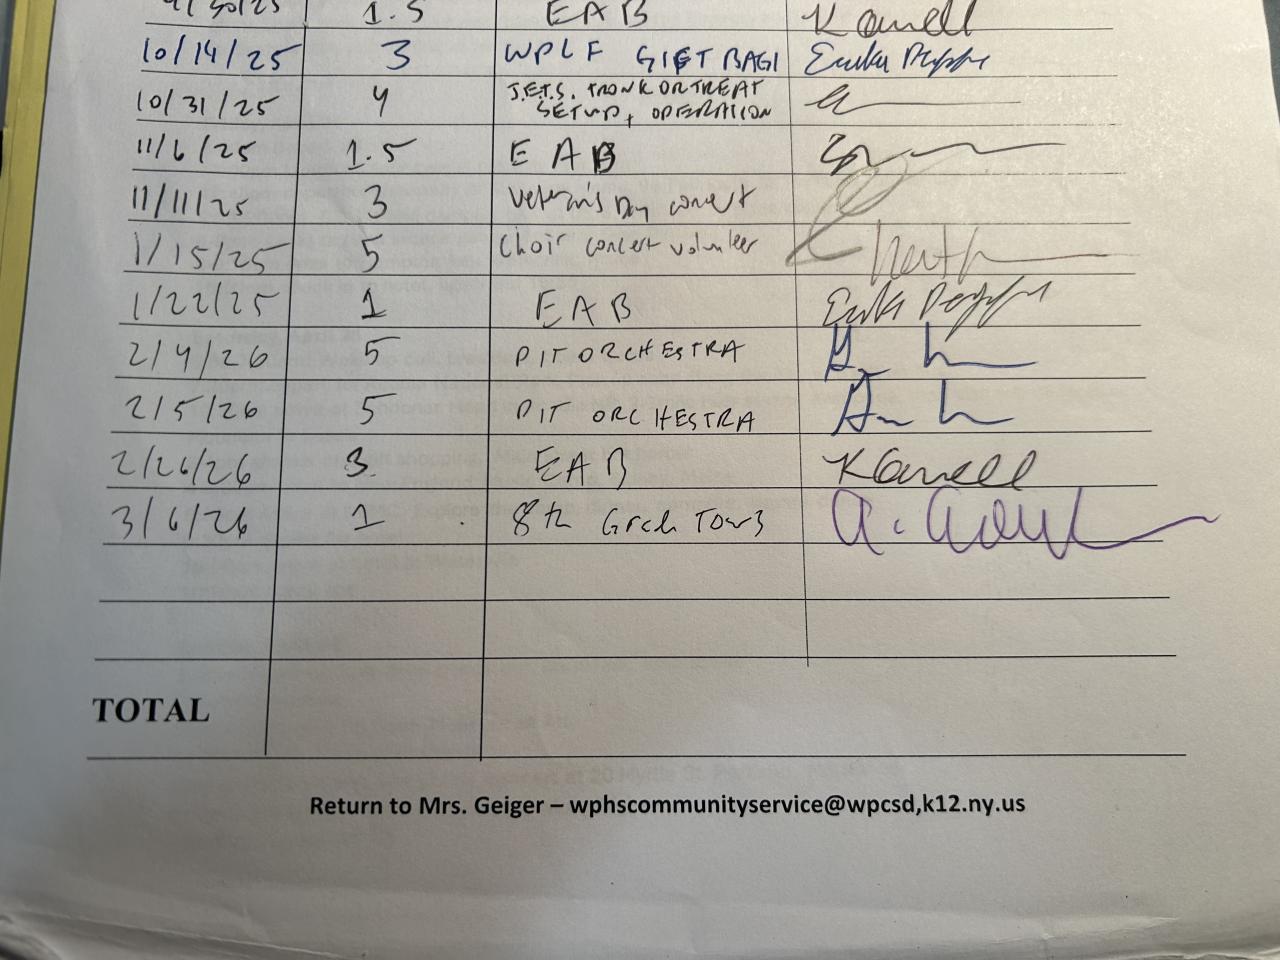 9/30/25 1.5 EAB Kanell
10/14/25 3 WPLF GIFT BAGS Erika Peppe
10/31/25 4 J.E.T.S. TRUNK OR TREAT
SETUP + OPERATION
11/6/25 1.5 EAB
11/11/25 3 Veteran's Day concert
1/15/25 5 Choir concert volunteer
1/22/25 1 EAB
2/4/26 5 PIT ORCHESTRA
2/5/26 5 PIT ORCHESTRA
2/26/26 3 EAB Kanell
3/6/26 1 8th Grade Tours
TOTAL
Return to Mrs. Geiger – wphscommunityservice@wpcsd,k12.ny.us